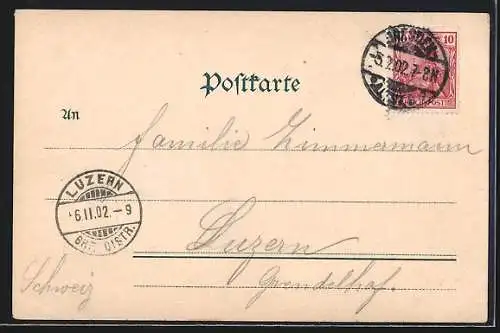 Postkarte
10
DRESDEN
5.2.02.7-8N.
An
Familie Zimmermann
LUZERN
6.II.02.-9
BRF. DISTR.
Luzern
Schweiz
Grendelhof.